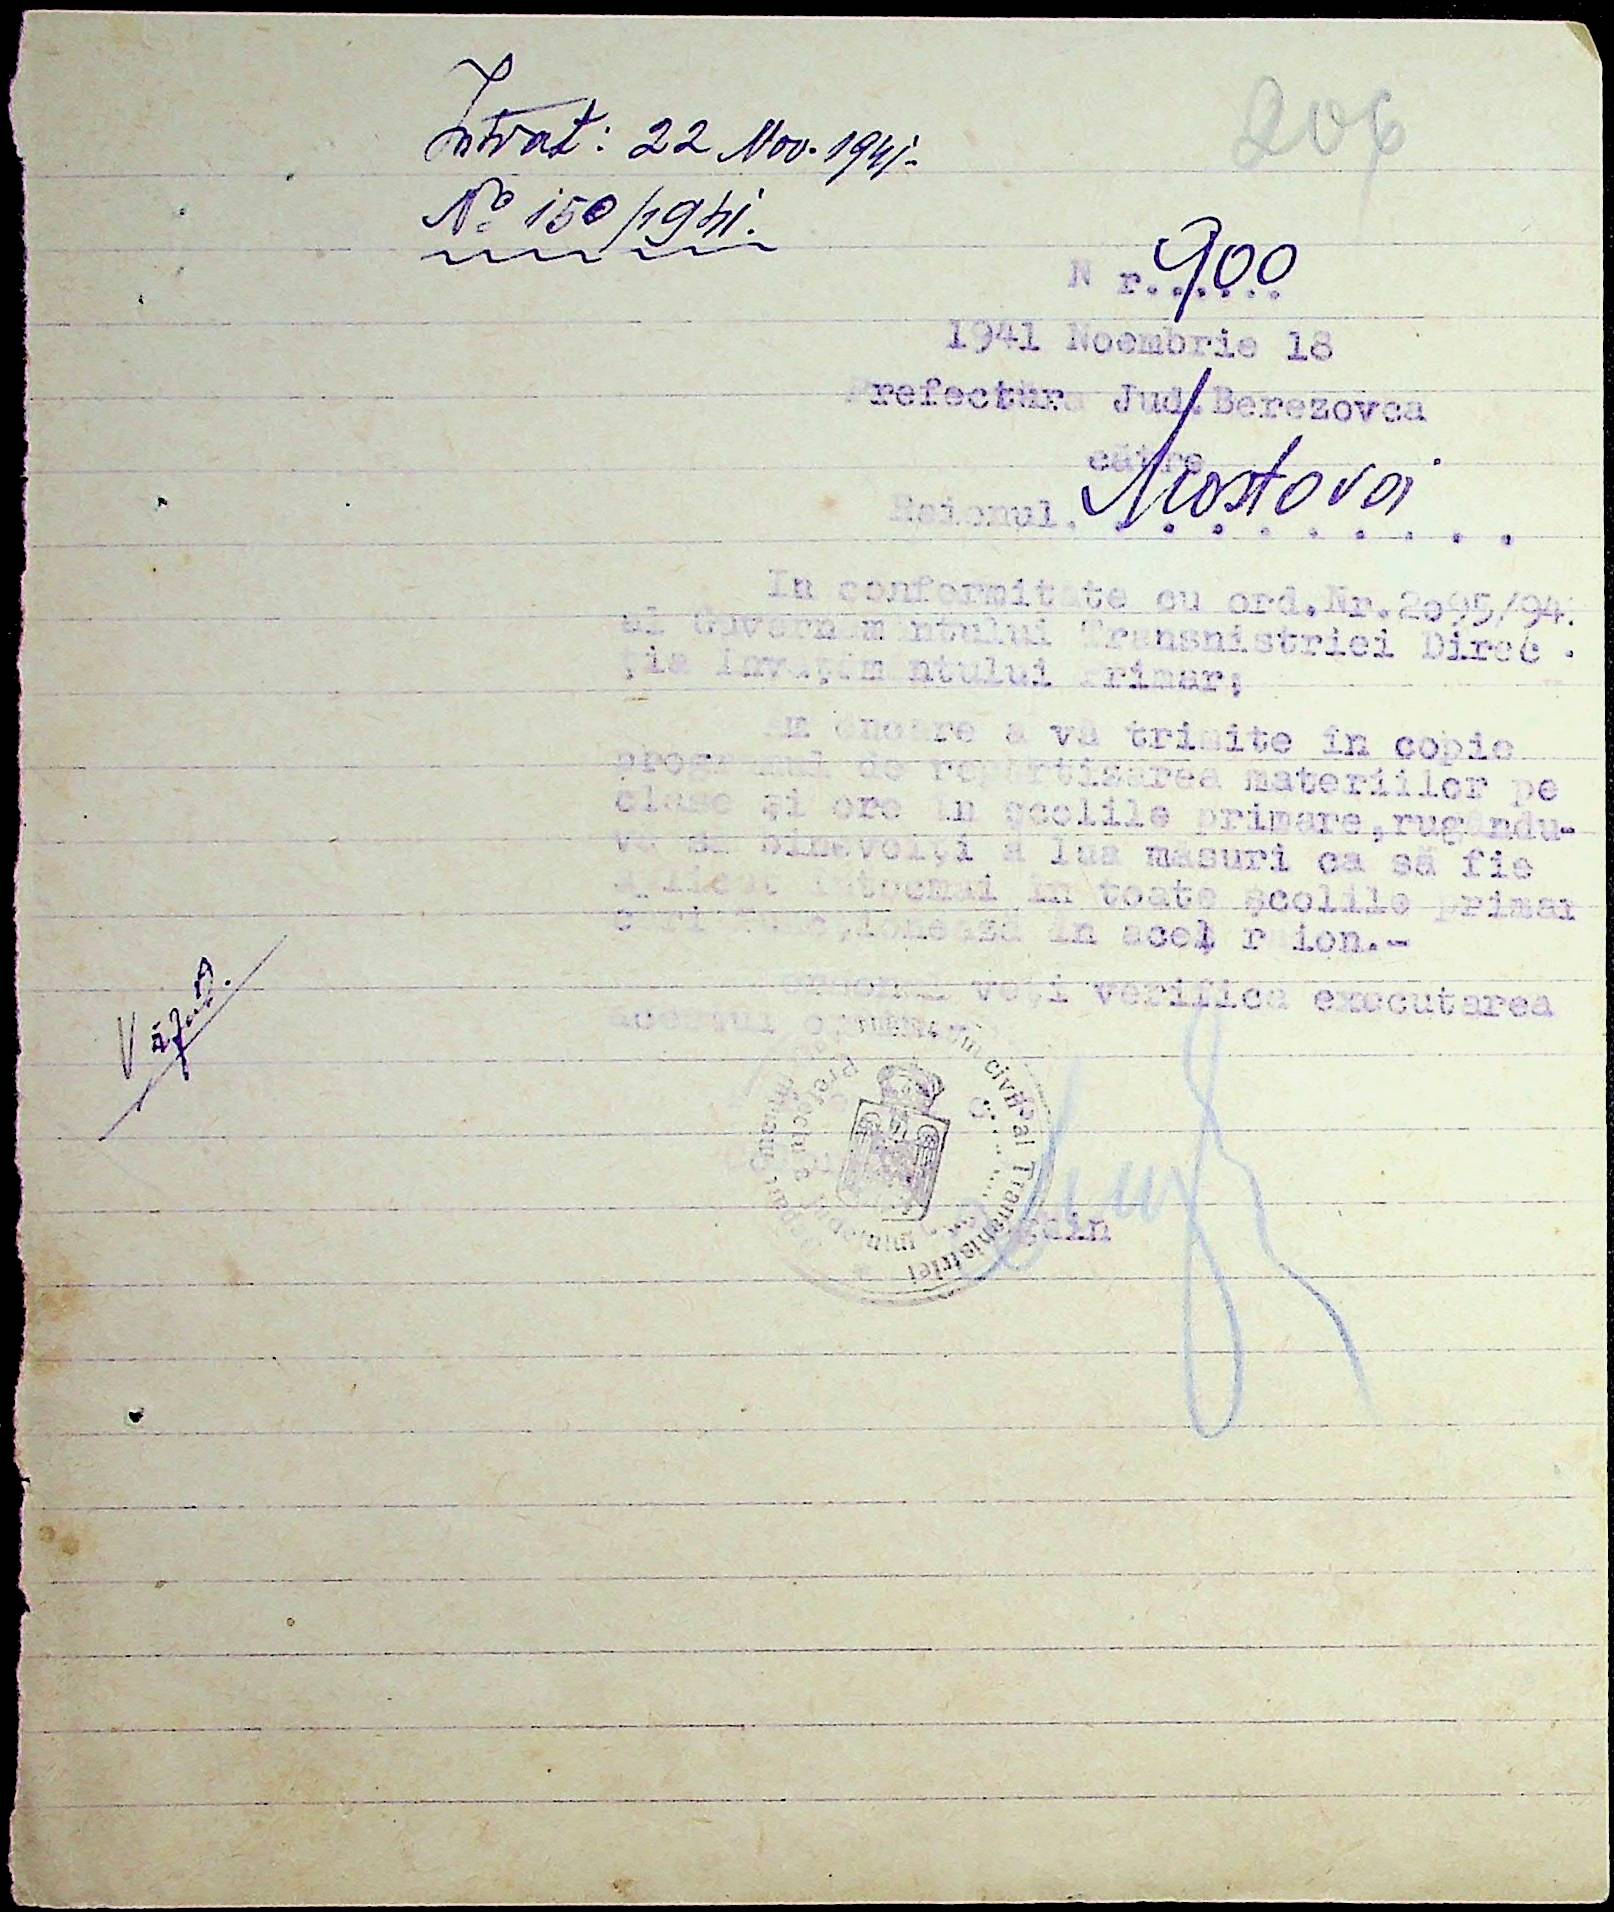 Intrat: 22 Nov. 1941.
No 150/1941.
206
N r. 900
1941 Noembrie 18
Prefectura Jud.Berezovca
către
Raionul. Mostovoi
In conformitate cu ord.Nr.2095/94
al Guvernamântului Transnistriei Direc
ția Invățământului Primar;
Am onoare a vă trimite în copie
programul de repartizarea materiilor pe
clase și ore în școlile primare,rugându-
vă să binevoiți a lua măsuri ca să fie
aplicat întocmai în toate școlile primar
cari funcționează în acel raion.-
Personal veți verifica executarea
acestui
Văzut.
civil al Transnistriei
Prefectura